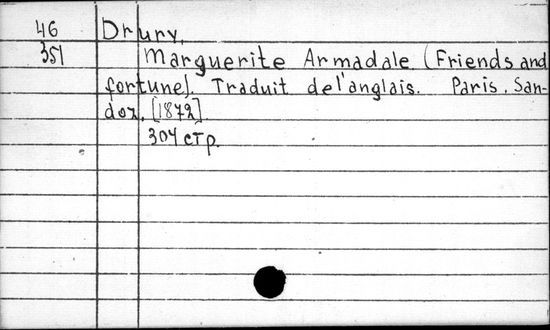 46 Drury,
351 Marguerite Armadale (Friends and
fortune). Traduit de l'anglais. Paris, San-
doz, [1872]
304 стр.